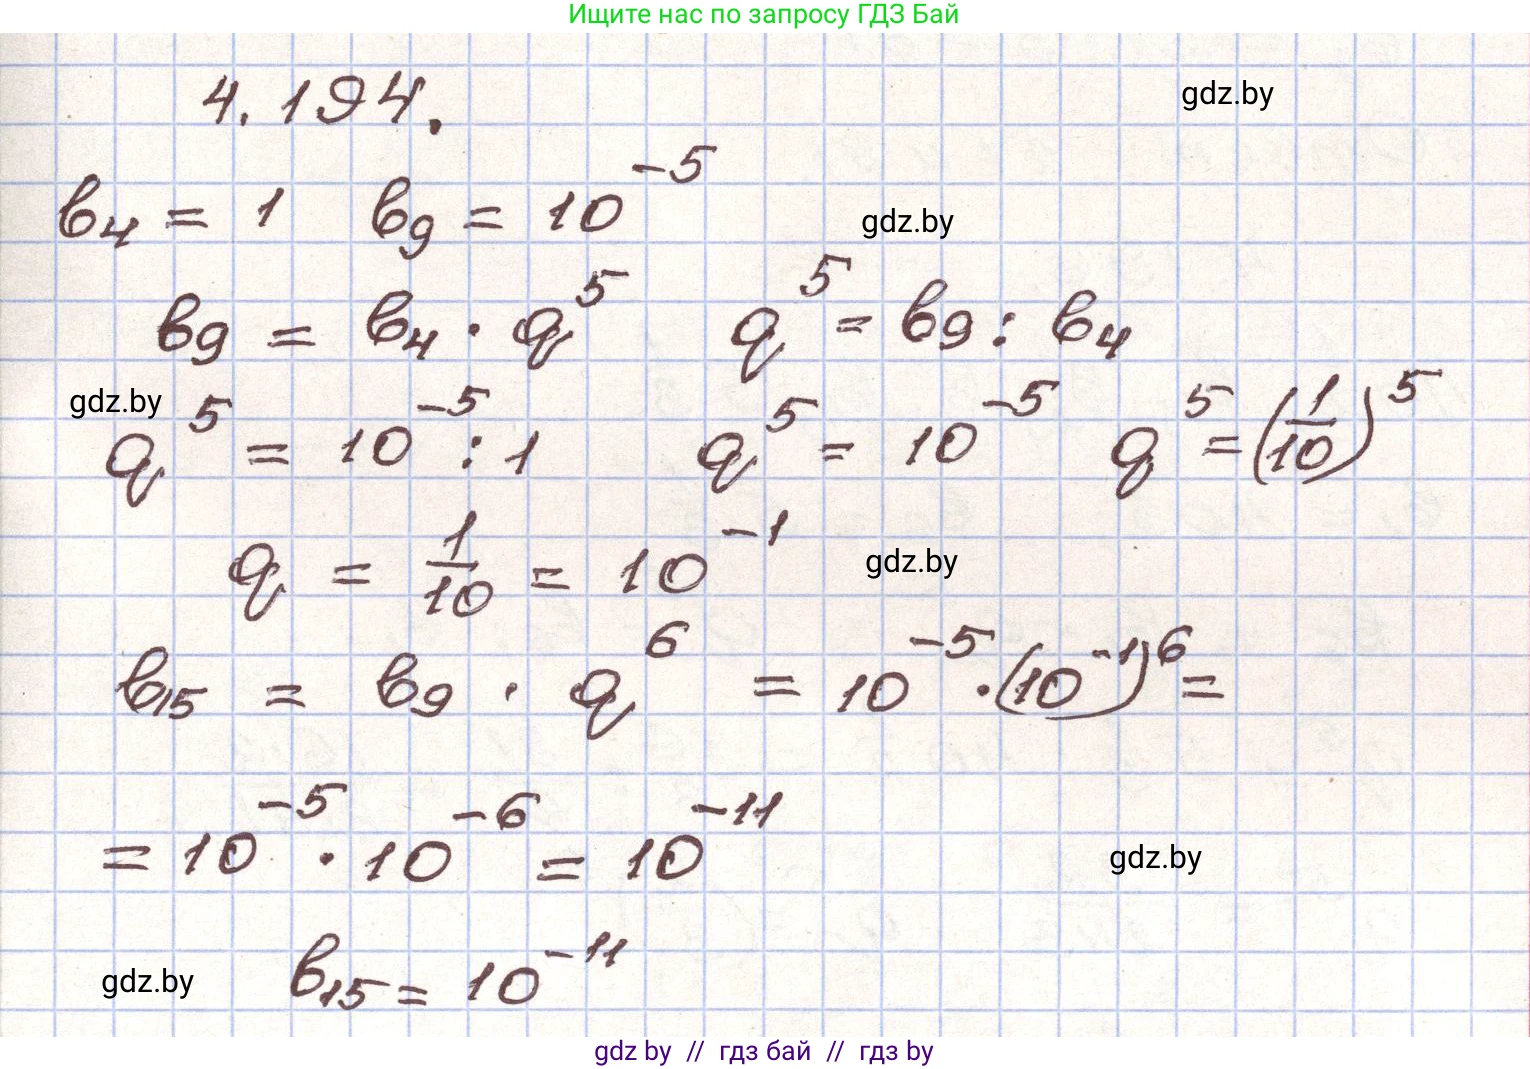 Ищите нас по запросу ГДЗ Бай
4.194.
gdz.by
b₄ = 1   b₉ = 10⁻⁵
gdz.by
b₉ = b₄ · q⁵   q⁵ = b₉ : b₄
gdz.by
q⁵ = 10⁻⁵ : 1   q⁵ = 10⁻⁵   q⁵ = (1/10)⁵
q = 1/10 = 10⁻¹
gdz.by
b₁₅ = b₉ · q⁶ = 10⁻⁵ · (10⁻¹)⁶ =
= 10⁻⁵ · 10⁻⁶ = 10⁻¹¹
gdz.by
gdz.by
b₁₅ = 10⁻¹¹
gdz by // гдз бай // гдз by